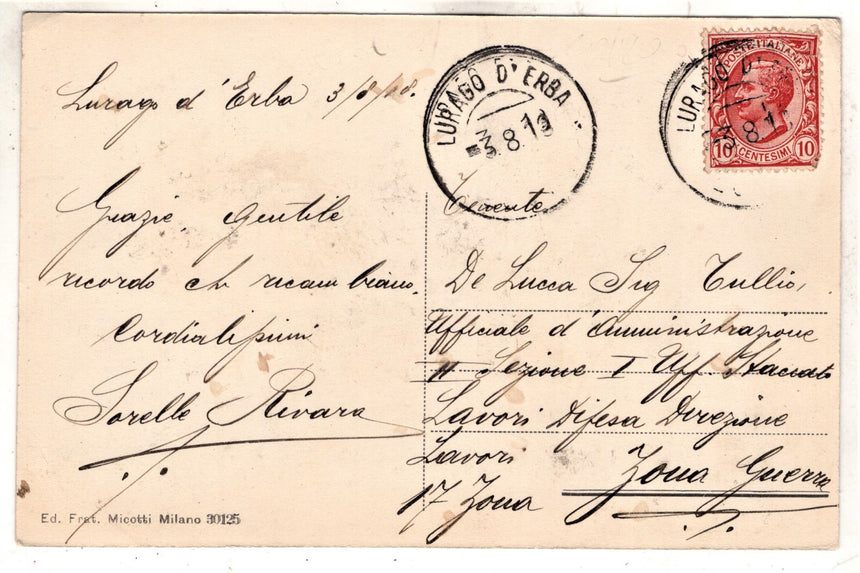 Lurago d'Erba 3/8/18.
Grazie, gentile
ricordo che ricambiamo,
Cordialissimi
Sorelle Rivara
Ed. Frat. Micotti Milano 30125
LURAGO D'ERBA
3.8.18
LURAGO D'
3.8.1
POSTE ITALIANE
10 CENTESIMI 10
Tenente
De Lucca Sig Tullio,
Ufficiale d'Amministrazione
II Sezione I Uff. Staccato
Lavori Difesa Direzione
Lavori Zona Guerra
17 Zona